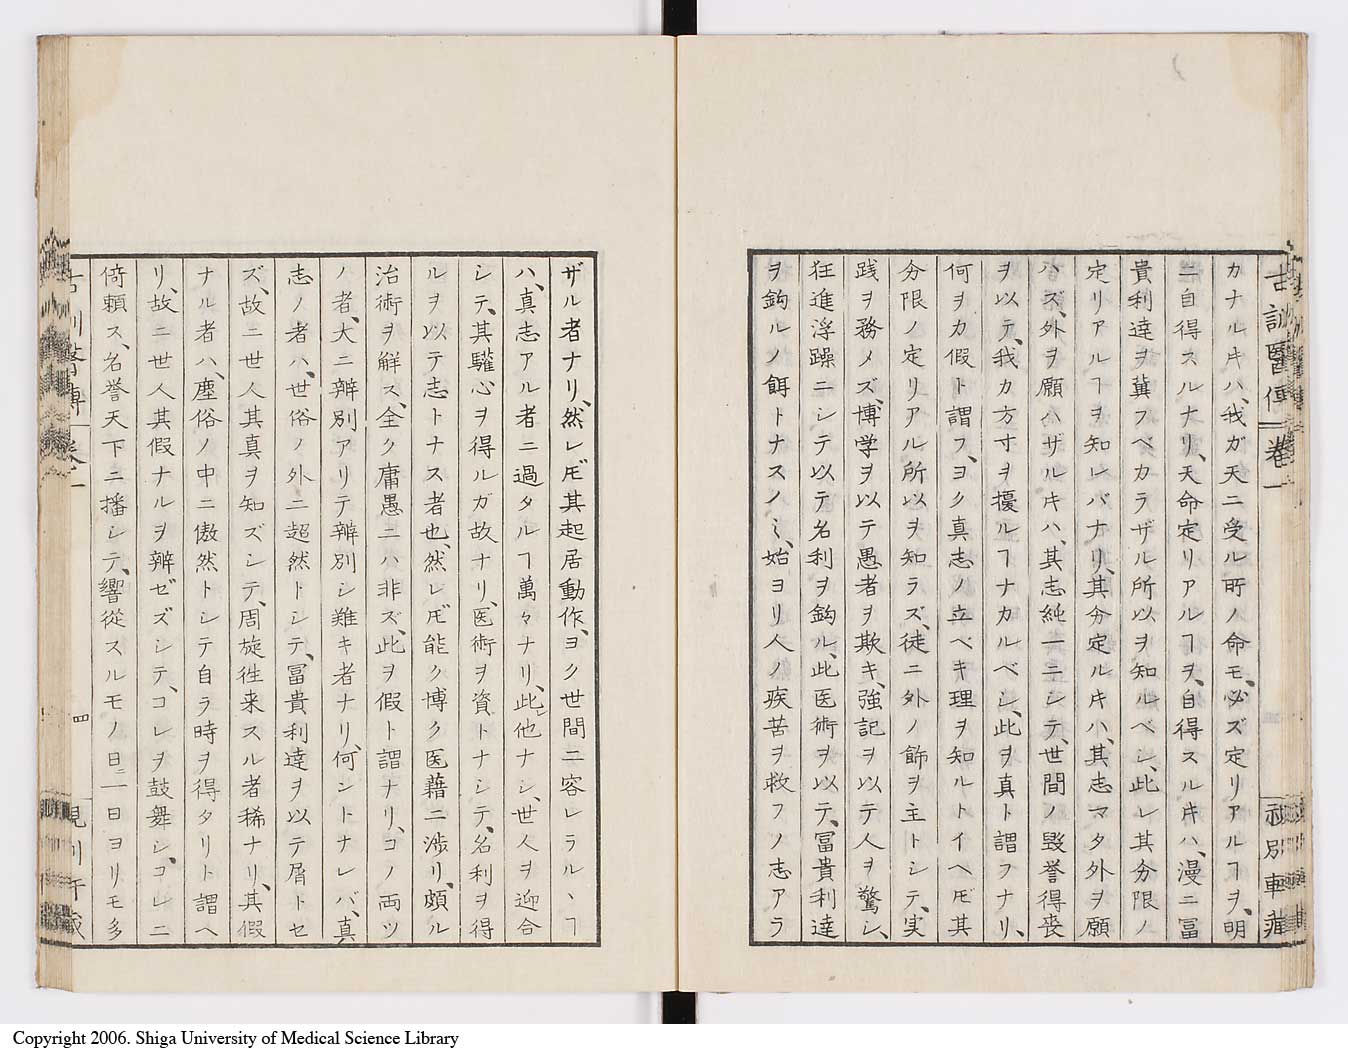 カナルキハ、我ガ天ニ受ル所ノ命モ、必ズ定リアルヿヲ、明
ニ自得スルナリ、天命定リアルヿヲ、自得スルキハ、漫ニ冨
貴利達ヲ冀フベカラザル所以ヲ知ルベシ、此レ其分限ノ
定リアルヿヲ知レバナリ、其分定ルキハ、其志マタ外ヲ願
ハズ、外ヲ願ハザルキハ、其志純一ニシテ、世間ノ毀誉得喪
ヲ以テ、我カ方寸ヲ擾ルヿナカルベシ、此ヲ真ト謂フナリ、
何ヲカ假ト謂フ、ヨク真志ノ立ベキ理ヲ知ルトイヘ𪜈其
分限ノ定リアル所以ヲ知ラズ、徒ニ外ノ飾ヲ主トシテ、実
践ヲ務メズ、博学ヲ以テ愚者ヲ欺キ、強記ヲ以テ人ヲ驚シ、
狂進浮躁ニシテ以テ名利ヲ鈎ル、此医術ヲ以テ、冨貴利達
ヲ鈎ルノ餌トナスノミ、始ヨリ人ノ疾苦ヲ救フノ志アラ
ザル者ナリ、然レ𪜈其起居動作、ヨク世間ニ容レラルヽヿ
ハ、真志アル者ニ過タルヿ萬々ナリ、此レ他ナシ、世人ヲ迎合
シテ、其驩心ヲ得ルガ故ナリ、医術ヲ資トナシテ、名利ヲ得
ルヲ以テ志トナス者也、然レ𪜈能ク博ク医藉ニ渉リ、頗ル
治術ヲ解ス、全ク庸愚ニハ非ズ、此ヲ假ト謂ナリ、コノ両ツ
ノ者、大ニ辨別アリテ辨別シ難キ者ナリ、何ントナレバ、真
志ノ者ハ、世俗ノ外ニ超然トシテ、冨貴利達ヲ以テ屑トセ
ズ、故ニ世人其真ヲ知ズシテ、周旋徃来スル者稀ナリ、其假
ナル者ハ、塵俗ノ中ニ傲然トシテ自ラ時ヲ得タリト謂ヘ
リ、故ニ世人其假ナルヲ辨ゼズシテ、コレヲ鼓舞シ、コレニ
倚頼ス、名誉天下ニ播シテ、響從スルモノ日ニ一日ヨリモ多
四
Copyright 2006. Shiga University of Medical Science Library